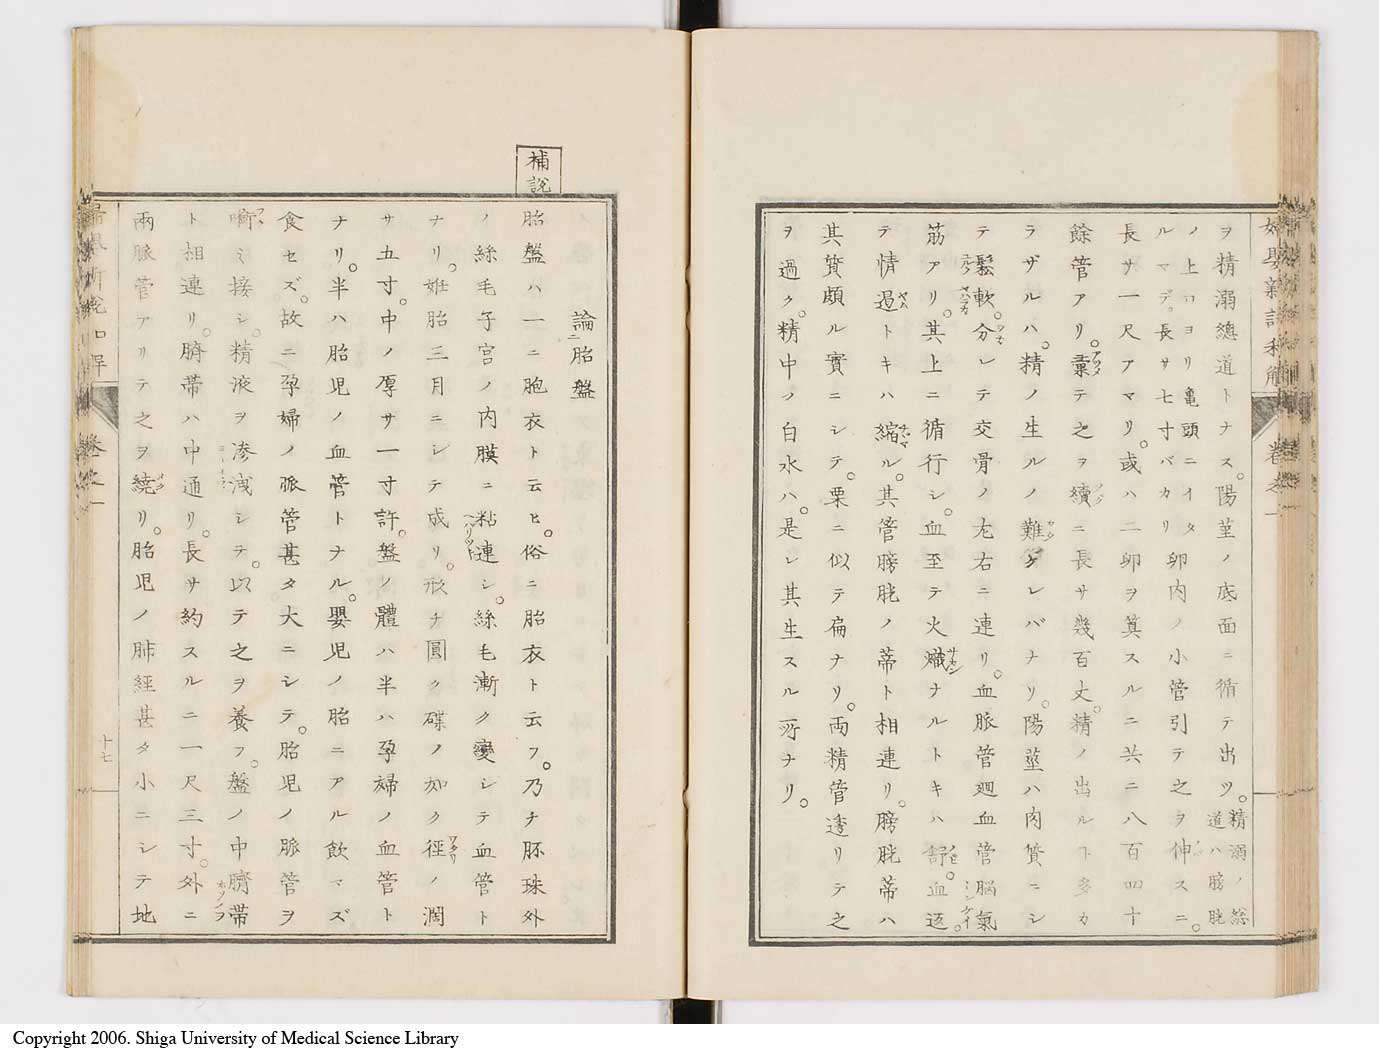 ヲ精溺總道トナス。陽莖ノ底面ニ循テ出ツ。
精溺ノ總
道ハ膀胱
ノ上口ヨリ亀頭ニイタ
ルマデ。長サ七寸バカリ
卵内ノ小管引テ之ヲ伸スニ。
長サ一尺アマリ。或ハ二卵ヲ算スルニ共ニ八百四十
餘管アリ。彙テ之ヲ續ニ長サ幾百丈。精ノ出ル丁多カ
ラザルハ。精ノ生ルノ難ケレバナリ。陽莖ハ肉質ニシ
テ鬆軟。分レテ交骨ノ左右ニ連リ。血脈管廻血管脳氣
筋アリ。其上ニ循行シ。血至テ火熾ナルトキハ舒。血返
テ情過トキハ縮ル。其管膀胱ノ蒂ト相連リ。膀胱蒂ハ
其質頗ル實ニシテ。栗ニ似テ扁ナリ。両精管透リテ之
ヲ過ク。精中ノ白水ハ。是レ其生スル所ナリ。
卷之一
補説
論胎盤
胎盤ハ一ニ胞衣ト云ヒ。俗ニ胎衣ト云フ。乃ナ胚珠外
ノ絲毛子宮ノ内膜ニ粘連シ。絲毛漸ク變シテ血管ト
ナリ。姙胎三月ニシテ成リ。形チ圓ク碟ノ如ク徑ノ濶
サ五寸。中ノ厚サ一寸許。盤ノ體ハ半ハ孕婦ノ血管ト
ナリ。半ハ胎児ノ血管トナル。嬰児ノ胎ニアル飲マズ
食セズ。故ニ孕婦ノ脈管甚タ大ニシテ。胎児ノ脈管ヲ
嘶ミ接シ。精液ヲ滲洩シテ。以テ之ヲ養フ。盤ノ中臍帯
ト相連リ。臍帯ハ中通リ。長サ約スルニ一尺三寸。外ニ
兩脈管アリテ之ヲ繞リ。胎児ノ肺經甚タ小ニシテ地
卷之一
十七
Copyright 2006. Shiga University of Medical Science Library